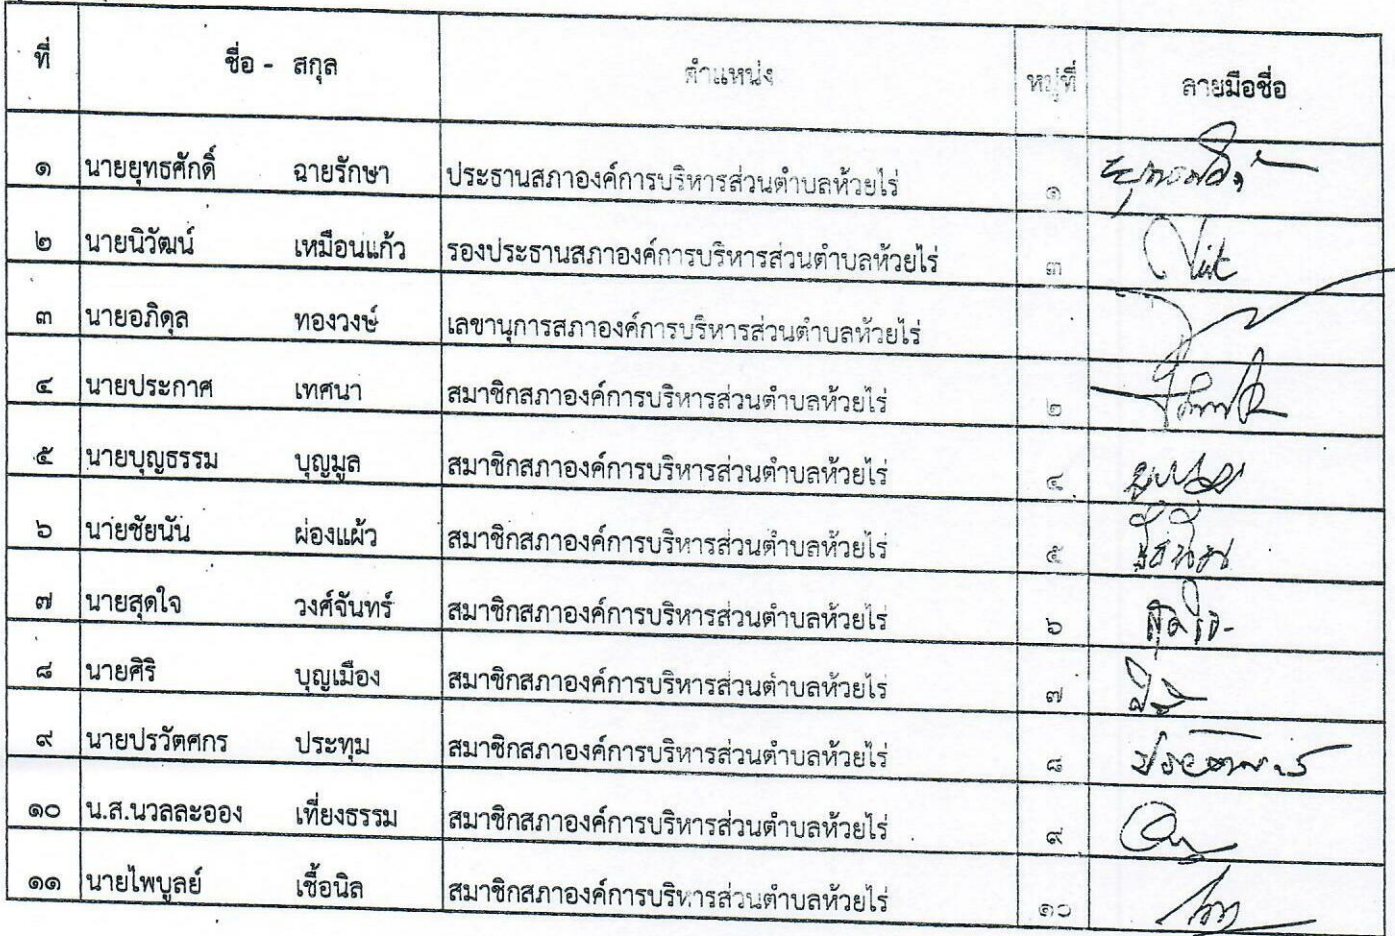 ที่ ชื่อ - สกุล ตำแหน่ง หมู่ที่ ลายมือชื่อ
๑ นายยุทธศักดิ์ ฉายรักษา ประธานสภาองค์การบริหารส่วนตำบลห้วยไร่ ๑
๒ นายนิวัฒน์ เหมือนแก้ว รองประธานสภาองค์การบริหารส่วนตำบลห้วยไร่ ๓
๓ นายอภิดุล ทองวงษ์ เลขานุการสภาองค์การบริหารส่วนตำบลห้วยไร่
๔ นายประกาศ เทศนา สมาชิกสภาองค์การบริหารส่วนตำบลห้วยไร่ ๒
๕ นายบุญธรรม บุญมูล สมาชิกสภาองค์การบริหารส่วนตำบลห้วยไร่ ๔
๖ นายชัยนัน ผ่องแผ้ว สมาชิกสภาองค์การบริหารส่วนตำบลห้วยไร่ ๕
๗ นายสุดใจ วงศ์จันทร์ สมาชิกสภาองค์การบริหารส่วนตำบลห้วยไร่ ๖ สุดใจ
๘ นายศิริ บุญเมือง สมาชิกสภาองค์การบริหารส่วนตำบลห้วยไร่ ๗
๙ นายปรวัตศกร ประทุม สมาชิกสภาองค์การบริหารส่วนตำบลห้วยไร่ ๘
๑๐ น.ส.นวลละออง เที่ยงธรรม สมาชิกสภาองค์การบริหารส่วนตำบลห้วยไร่ ๙
๑๑ นายไพบูลย์ เชื้อนิล สมาชิกสภาองค์การบริหารส่วนตำบลห้วยไร่ ๑๐